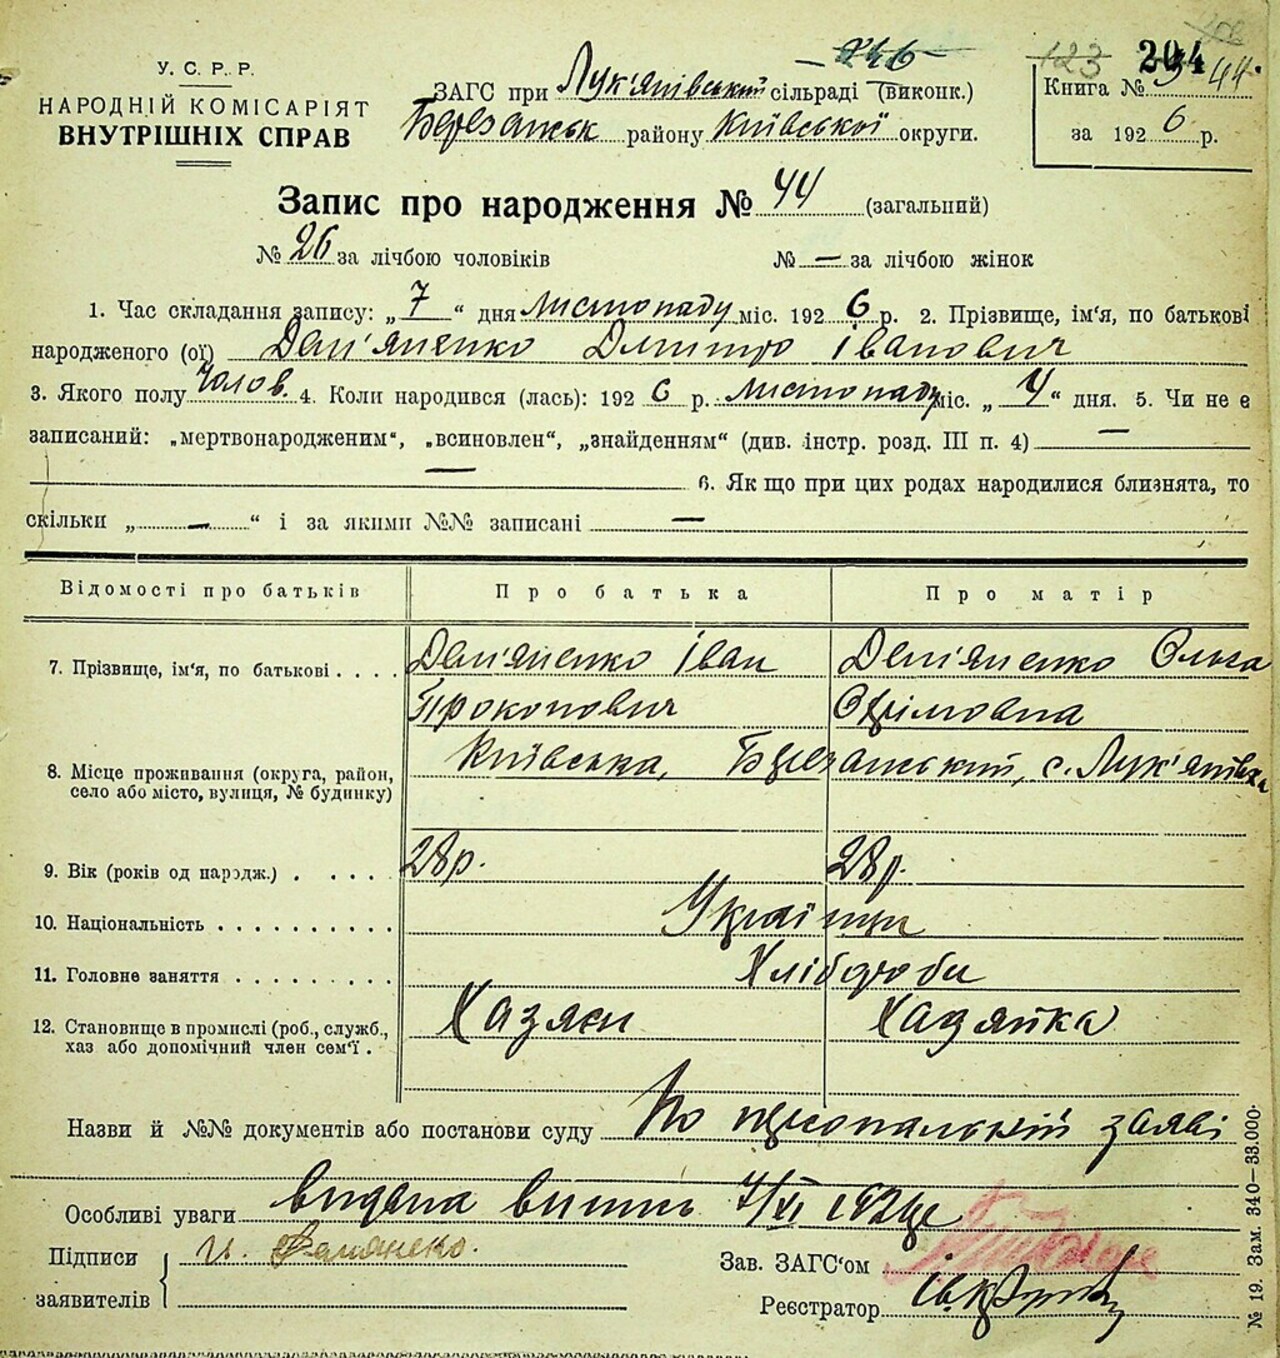 246
123 204
У. С. Р. Р.
НАРОДНІЙ КОМІСАРІЯТ
ВНУТРІШНІХ СПРАВ
ЗАГС при Лук'янівський сільраді (виконк.)
Березанськ району Київської округи.
Книга № 3 44.
за 1926 р.
Запис про народження № 44 (загальний)
№ 26 за лічбою чоловіків № — за лічбою жінок
1. Час складання запису: „7“ дня листопаду міс. 1926 р. 2. Прізвище, ім'я, по батькові
народженого (ої) Дем'яненко Дмитро Іванович
3. Якого полу чолов. 4. Коли народився (лась): 1926 р. листопаду міс. „4“ дня. 5. Чи не є
записаний: „мертвонародженим“, „всиновлен“, „знайденням“ (див. інстр. розд. III п. 4) —
— 6. Як що при цих родах народилися близнята, то
скільки „ — “ і за якими №№ записані —
Відомості про батьків Про батька Про матір
7. Прізвище, ім'я, по батькові . . . . Дем'яненко Іван Дем'яненко Ольга
Прокопович Юхимовна
8. Місце проживання (округа, район, Київська, Березанський, с. Лук'янівка
село або місто, вулиця, № будинку)
9. Вік (років од народж.) . . . . . 28 р. 28 р.
10. Національність . . . . . . . . . . Українці
11. Головне заняття . . . . . . . . . Хлібороби
12. Становище в промислі (роб., служб., Хазяєн Хазяйка
хаз або допомічний член сем'ї .
Назви й №№ документів або постанови суду По персональній заяві
Особливі уваги видана випис 7/XI 1926р
Підписи И. Демянеко.
заявителів
Зав. ЗАГС'ом
Реєстратор
№ 19. Зам. 340—33.000.